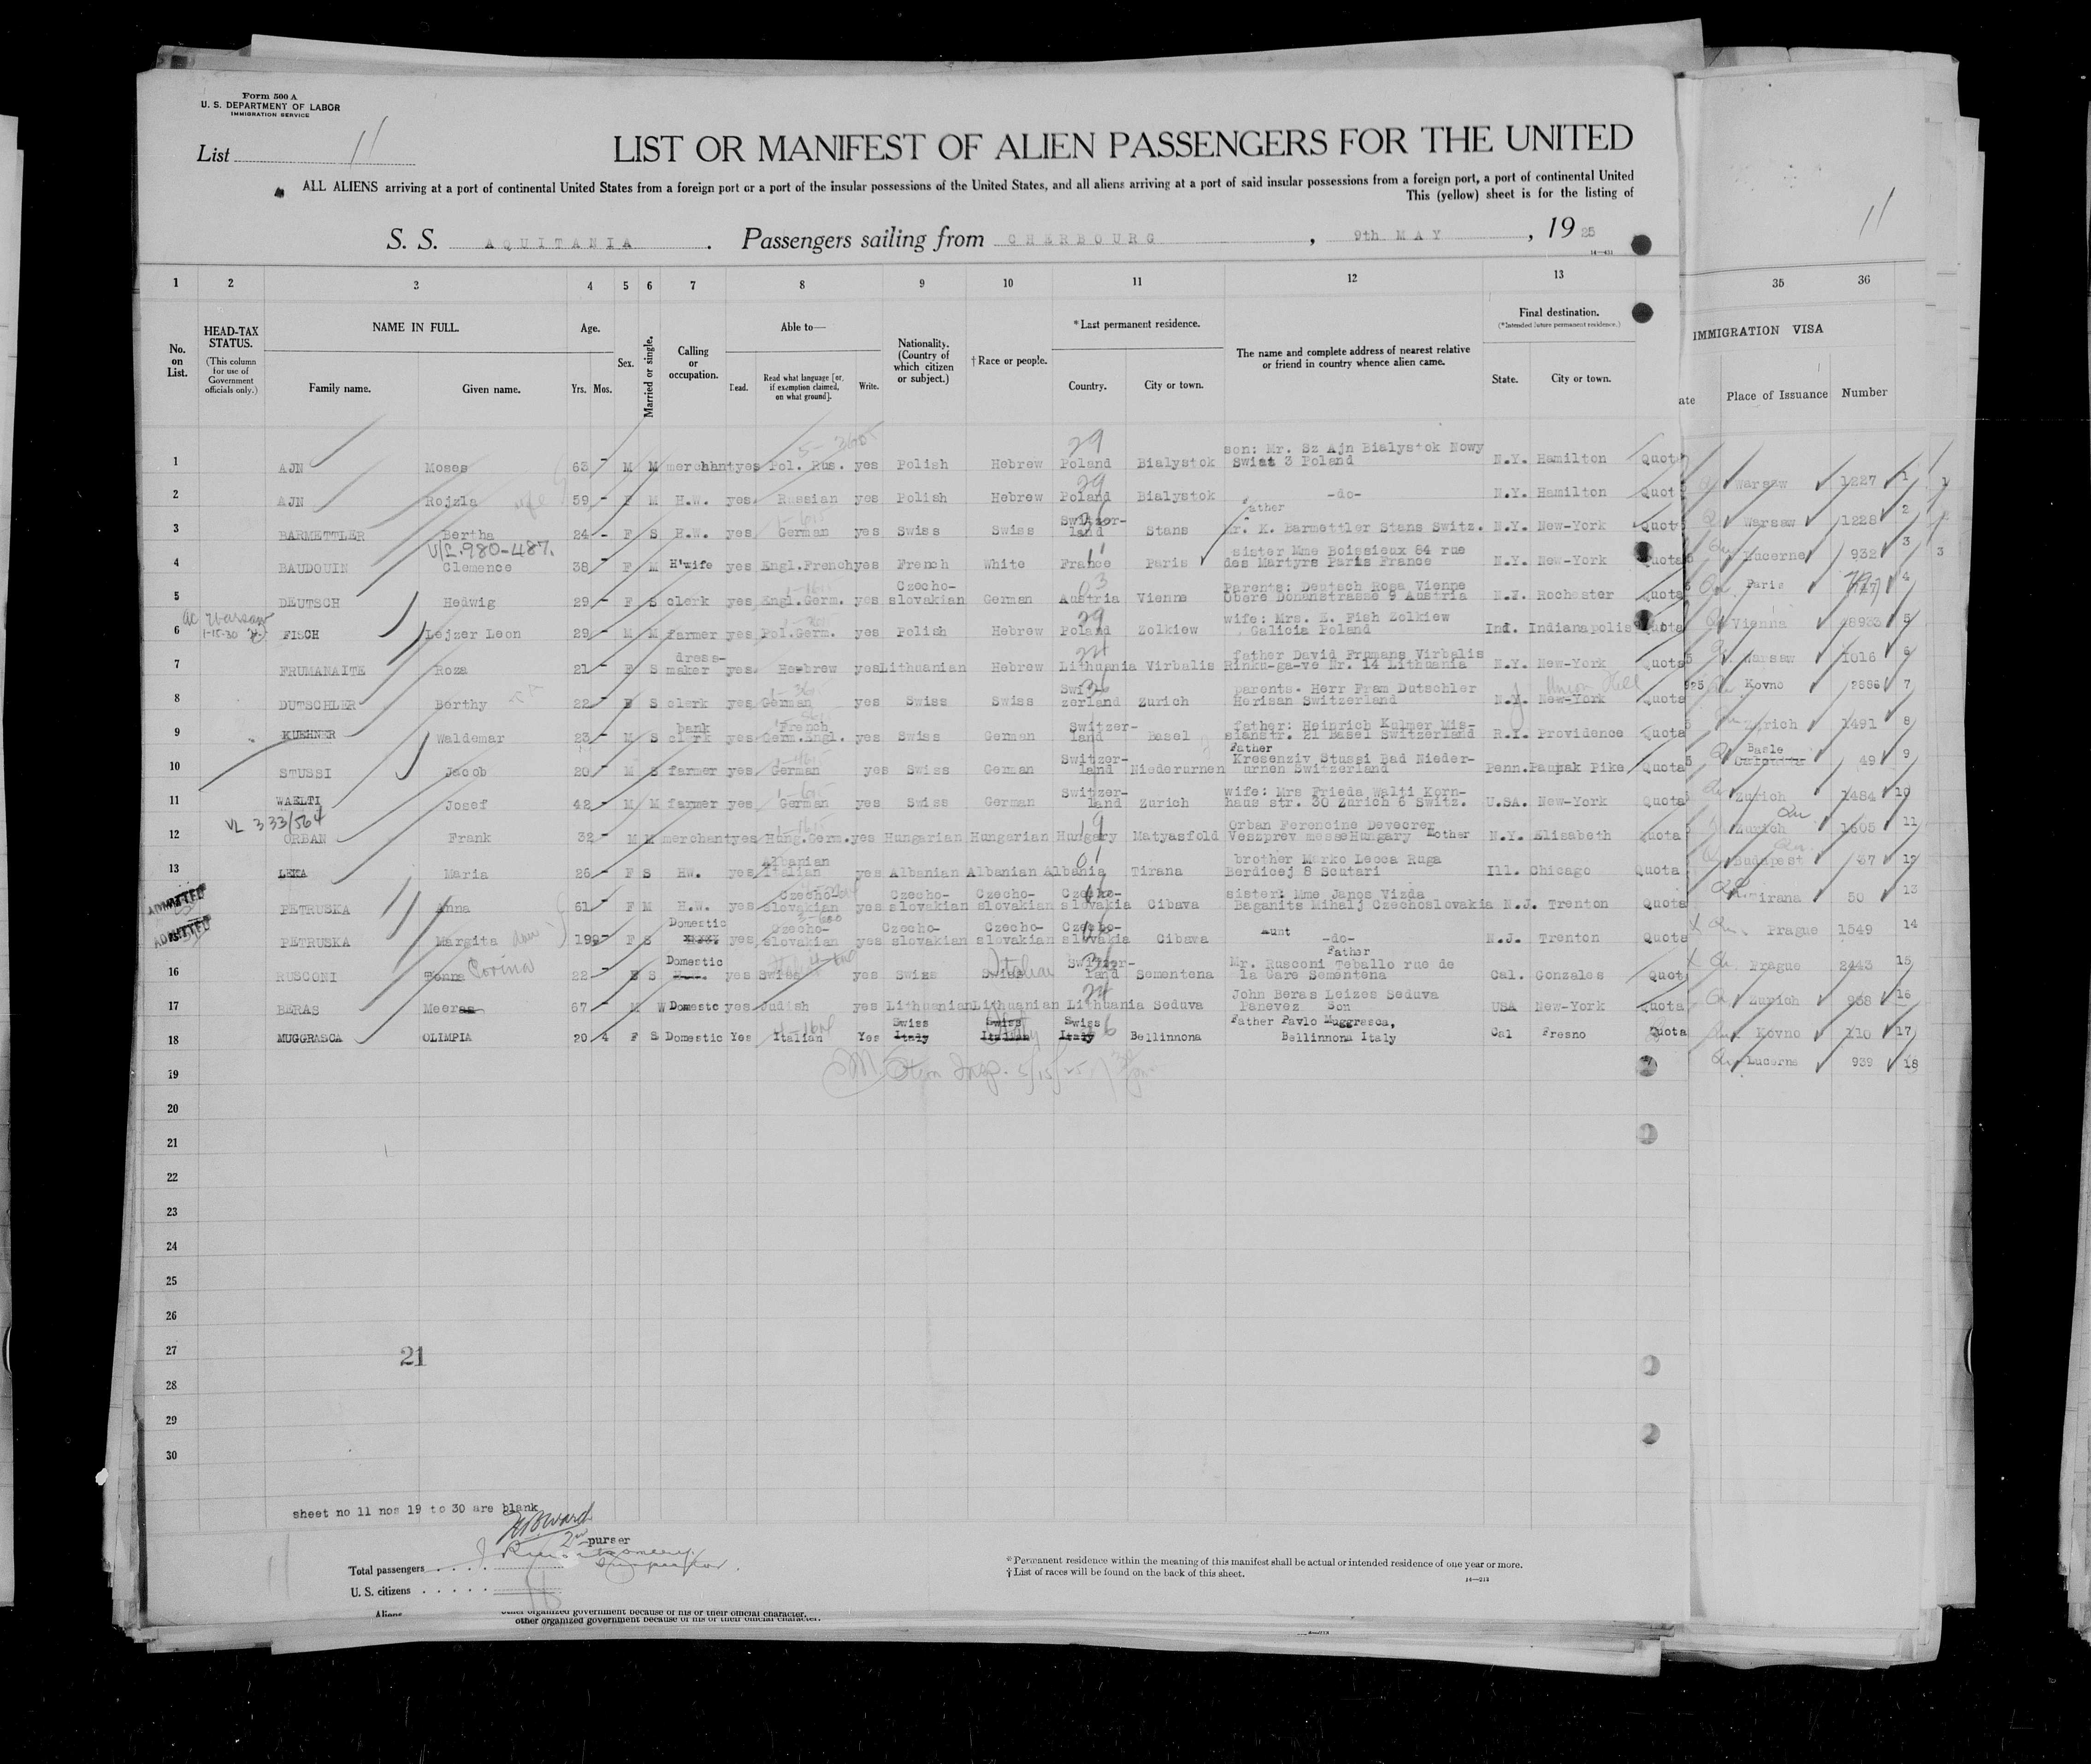 Form 500 A
U. S. DEPARTMENT OF LABOR
IMMIGRATION SERVICE
List 11
LIST OR MANIFEST OF ALIEN PASSENGERS FOR THE UNITED
ALL ALIENS arriving at a port of continental United States from a foreign port or a port of the insular possessions of the United States, and all aliens arriving at a port of said insular possessions from a foreign port, a port of continental United
This (yellow) sheet is for the listing of
11
S. S. AQUITANIA . Passengers sailing from CHERBOURG , 9th MAY , 19 25
1 2 3 4 5 6 7 8 9 10 11 12 13 35 36
No. on List.
HEAD-TAX STATUS.
(This column for use of Government officials only.)
NAME IN FULL.
Family name. Given name.
Age.
Yrs. Mos.
Sex.
Married or single.
Calling or occupation.
Able to—
Read. Read what language [or, if exemption claimed, on what ground]. Write.
Nationality. (Country of which citizen or subject.)
†Race or people.
*Last permanent residence.
Country. City or town.
The name and complete address of nearest relative or friend in country whence alien came.
Final destination.
(*Intended future permanent residence.)
State. City or town.
IMMIGRATION VISA
ate Place of Issuance Number
1 AJN Moses 63 M M merchant yes Pol. Rus. yes Polish Hebrew Poland Bialystok son: Mr. Sz Ajn Bialystok Nowy Swiat 3 Poland N.Y. Hamilton Quota
2 AJN Rojzla wife 59 F M H.W. yes Russian yes Polish Hebrew Poland Bialystok -do- N.Y. Hamilton Quot
3 BARMETTLER Bertha 24 F S H.W. yes German yes Swiss Swiss Switzer-land Stans father Mr. K. Barmettler Stans Switz. N.Y. New-York Quot
V/L.980-487.
4 BAUDOUIN Clemence 38 F M H'wife yes Engl.French yes French White France Paris sister Mme Boissieux 84 rue des Martyrs Paris France N.Y. New-York Quota
5 DEUTSCH Hedwig 29 F S clerk yes Engl.Germ. yes Czecho-slovakian German Austria Vienna Parents: Deutsch Rosa Vienne Obere Donanstrasse 9 Austria N.Y. Rochester Quota
Warsaw
1-15-30
6 FISCH Lejzer Leon 29 M M farmer yes Pol.Germ. yes Polish Hebrew Poland Zolkiew wife: Mrs. E. Fish Zolkiew Galicia Poland Ind. Indianapolis Quota
7 FRUMANAITE Roza 21 F S dress-maker yes Hebrew yes Lithuanian Hebrew Lithuania Virbalis father David Frumans Virbalis Rinku-ga-ve Nr. 14 Lithuania N.Y. New-York Quota
8 DUTSCHLER Berthy 22 F S clerk yes German yes Swiss Swiss Swit zerland Zurich parents. Herr Fram Dutschler Herisan Switzerland N.Y. New-York Union Hill Quota
9 KUEHNER Waldemar 23 M S bank clerk yes French Germ.Engl. yes Swiss German Switzer-land Basel father: Heinrich Kulmer Mis-sianstr. 21 Basel Switzerland R.I. Providence Quota
10 STUSSI Jacob 20 M S farmer yes German yes Swiss German Switzer-land Niederurnen Father Kresenziv Stussi Bad Nieder-urnen Switzerland Penn. Paupak Pike Quota
11 WAELTI Josef 42 M M farmer yes German yes Swiss German Switzer-land Zurich wife: Mrs Frieda Walti Korn-haus str. 30 Zurich 6 Switz. U.SA. New-York Quota
VL 333/564
12 ORBAN Frank 32 M M merchant yes Hung.Germ. yes Hungarian Hungarian Hungary Matyasfold Orban Ferencine Devecrer Veszprev messe Hungary Mother N.Y. Elisabeth Quota
13 LEKA Maria 26 F S HW. yes Albanian Italian yes Albanian Albanian Albania Tirana brother Marko Lecca Ruga Berdicej 8 Scutari Ill. Chicago Quota
ADMITTED PETRUSKA Anna 61 F M H.W. yes Czecho-slovakian yes Czecho-slovakian Czecho-slovakian Czecho-slovakia Cibava sister: Mme Janos Vizda Baganits Mihalj Czechoslovakia N.J. Trenton Quota
ADMITTED PETRUSKA Margita 19 F S Domestic yes Czecho-slovakian yes Czecho-slovakian Czecho-slovakian Czecho-slovakia Cibava aunt -do- N.J. Trenton Quota
16 RUSCONI Tonna Corina 22 F S Domestic H.W. yes Swiss yes Swiss Swiss Italian Switzer-land Sementena Father Mr. Rusconi Teballo rue de la Gare Sementena Cal. Gonzales Quot
17 BERAS Meeras 67 M W Domestc yes Judish yes Lithuanian Lithuanian Lithuania Seduva John Beras Leizes Seduva Panevez Son USA New-York Quota
18 MUGGRASCA OLIMPIA 20 4 F S Domestic Yes Italian Yes Swiss Italy Swiss Italian Swiss Italy Bellinnona Father Pavlo Muggresca, Bellinnona Italy Cal Fresno Quota
19
20
21
22
23
24
25
26
27
28
29
30
21
Warsaw 1227 1
Warsaw 1228 2
Lucerne 932 3
Paris 4
Vienna 8933 5
Warsaw 1016 6
Kovno 2886 7
Zurich 1491 8
Basle Calcutta 49 9
Zurich 1484 10
Zurich 1605 11
Budapest 67 12
Tirana 50 13
Prague 1549 14
Prague 2443 15
Zurich 968 16
Kovno 110 17
Lucerne 939 18
sheet no 11 nos 19 to 30 are blank
purser
Total passengers
U. S. citizens
Aliens
Inspector.
*Permanent residence within the meaning of this manifest shall be actual or intended residence of one year or more.
†List of races will be found on the back of this sheet.
other organized government because of his or their official character.
other organized government because of his or their official character.